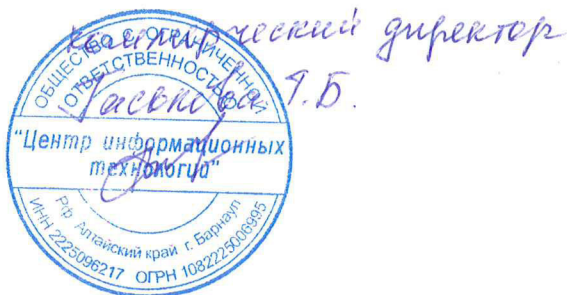 коммерческий директор
Т.Б.
ОБЩЕСТВО С ОГРАНИЧЕННОЙ
ОТВЕТСТВЕННОСТЬЮ
"Центр информационных
технологий"
РФ Алтайский край г. Барнаул
ИНН 2225096217 ОГРН 1082225006995